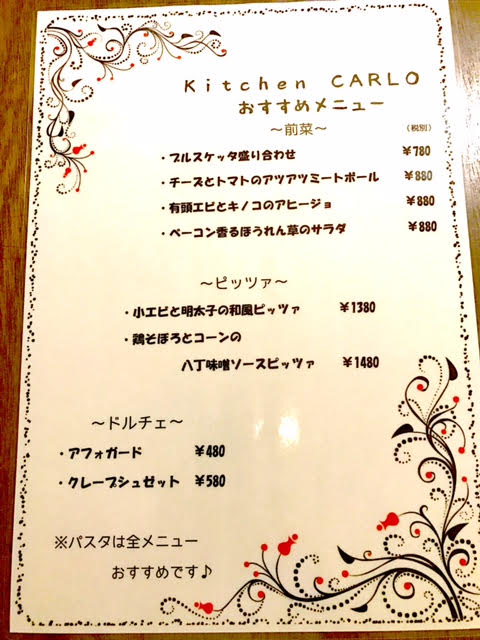 Kitchen CARLO
おすすめメニュー
～前菜～ (税別)
・ブルスケッタ盛り合わせ ¥780
・チーズとトマトのアツアツミートボール ¥880
・有頭エビとキノコのアヒージョ ¥880
・ベーコン香るほうれん草のサラダ ¥880
～ピッツァ～
・小エビと明太子の和風ピッツァ ¥1380
・鶏そぼろとコーンの
八丁味噌ソースピッツァ ¥1480
～ドルチェ～
・アフォガード ¥480
・クレープシュゼット ¥580
※パスタは全メニュー
おすすめです♪